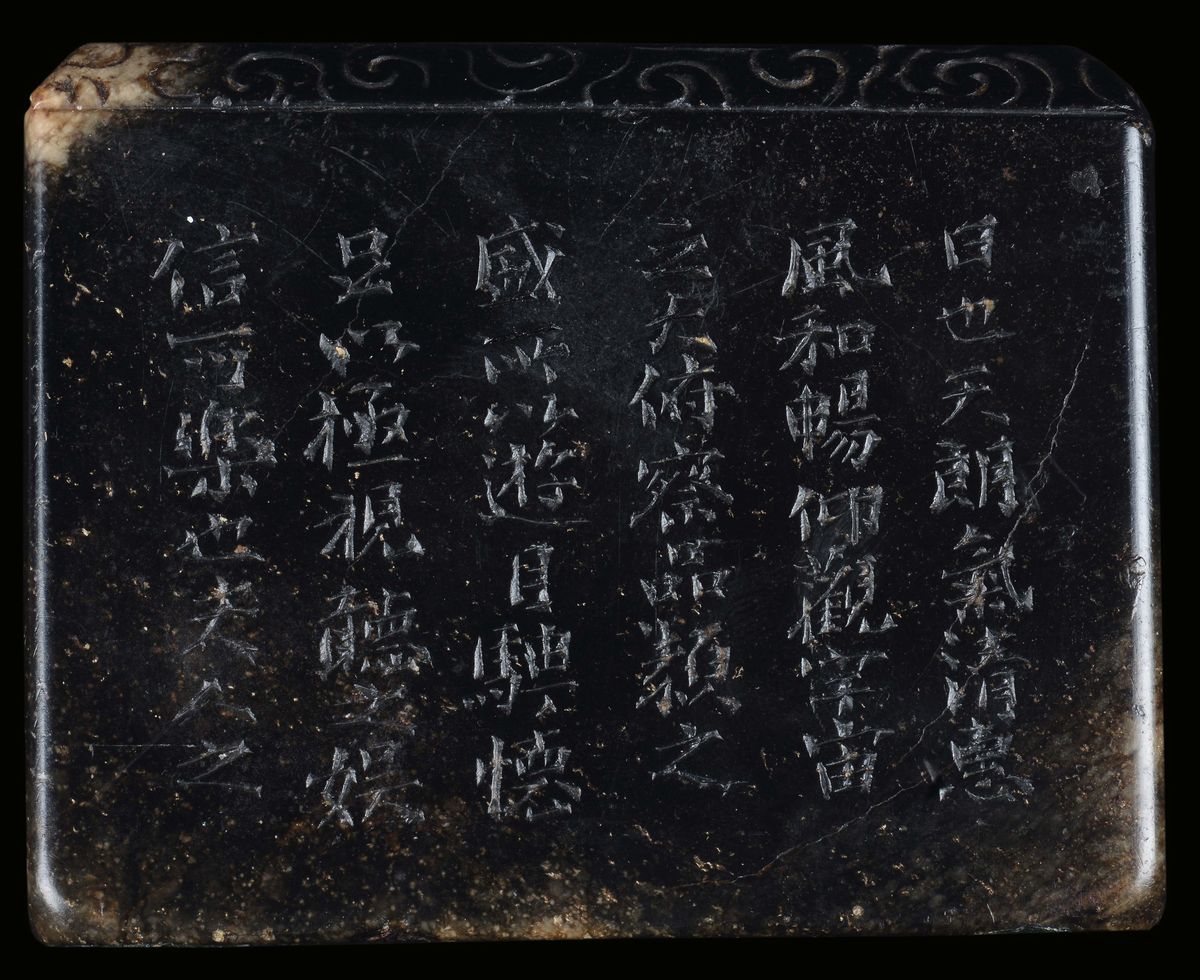 日也天朗氣清惠
風和暢仰觀宇宙
之大俯察品類之
盛所以遊目騁懷
足以極視聽之娛
信可樂也夫人之